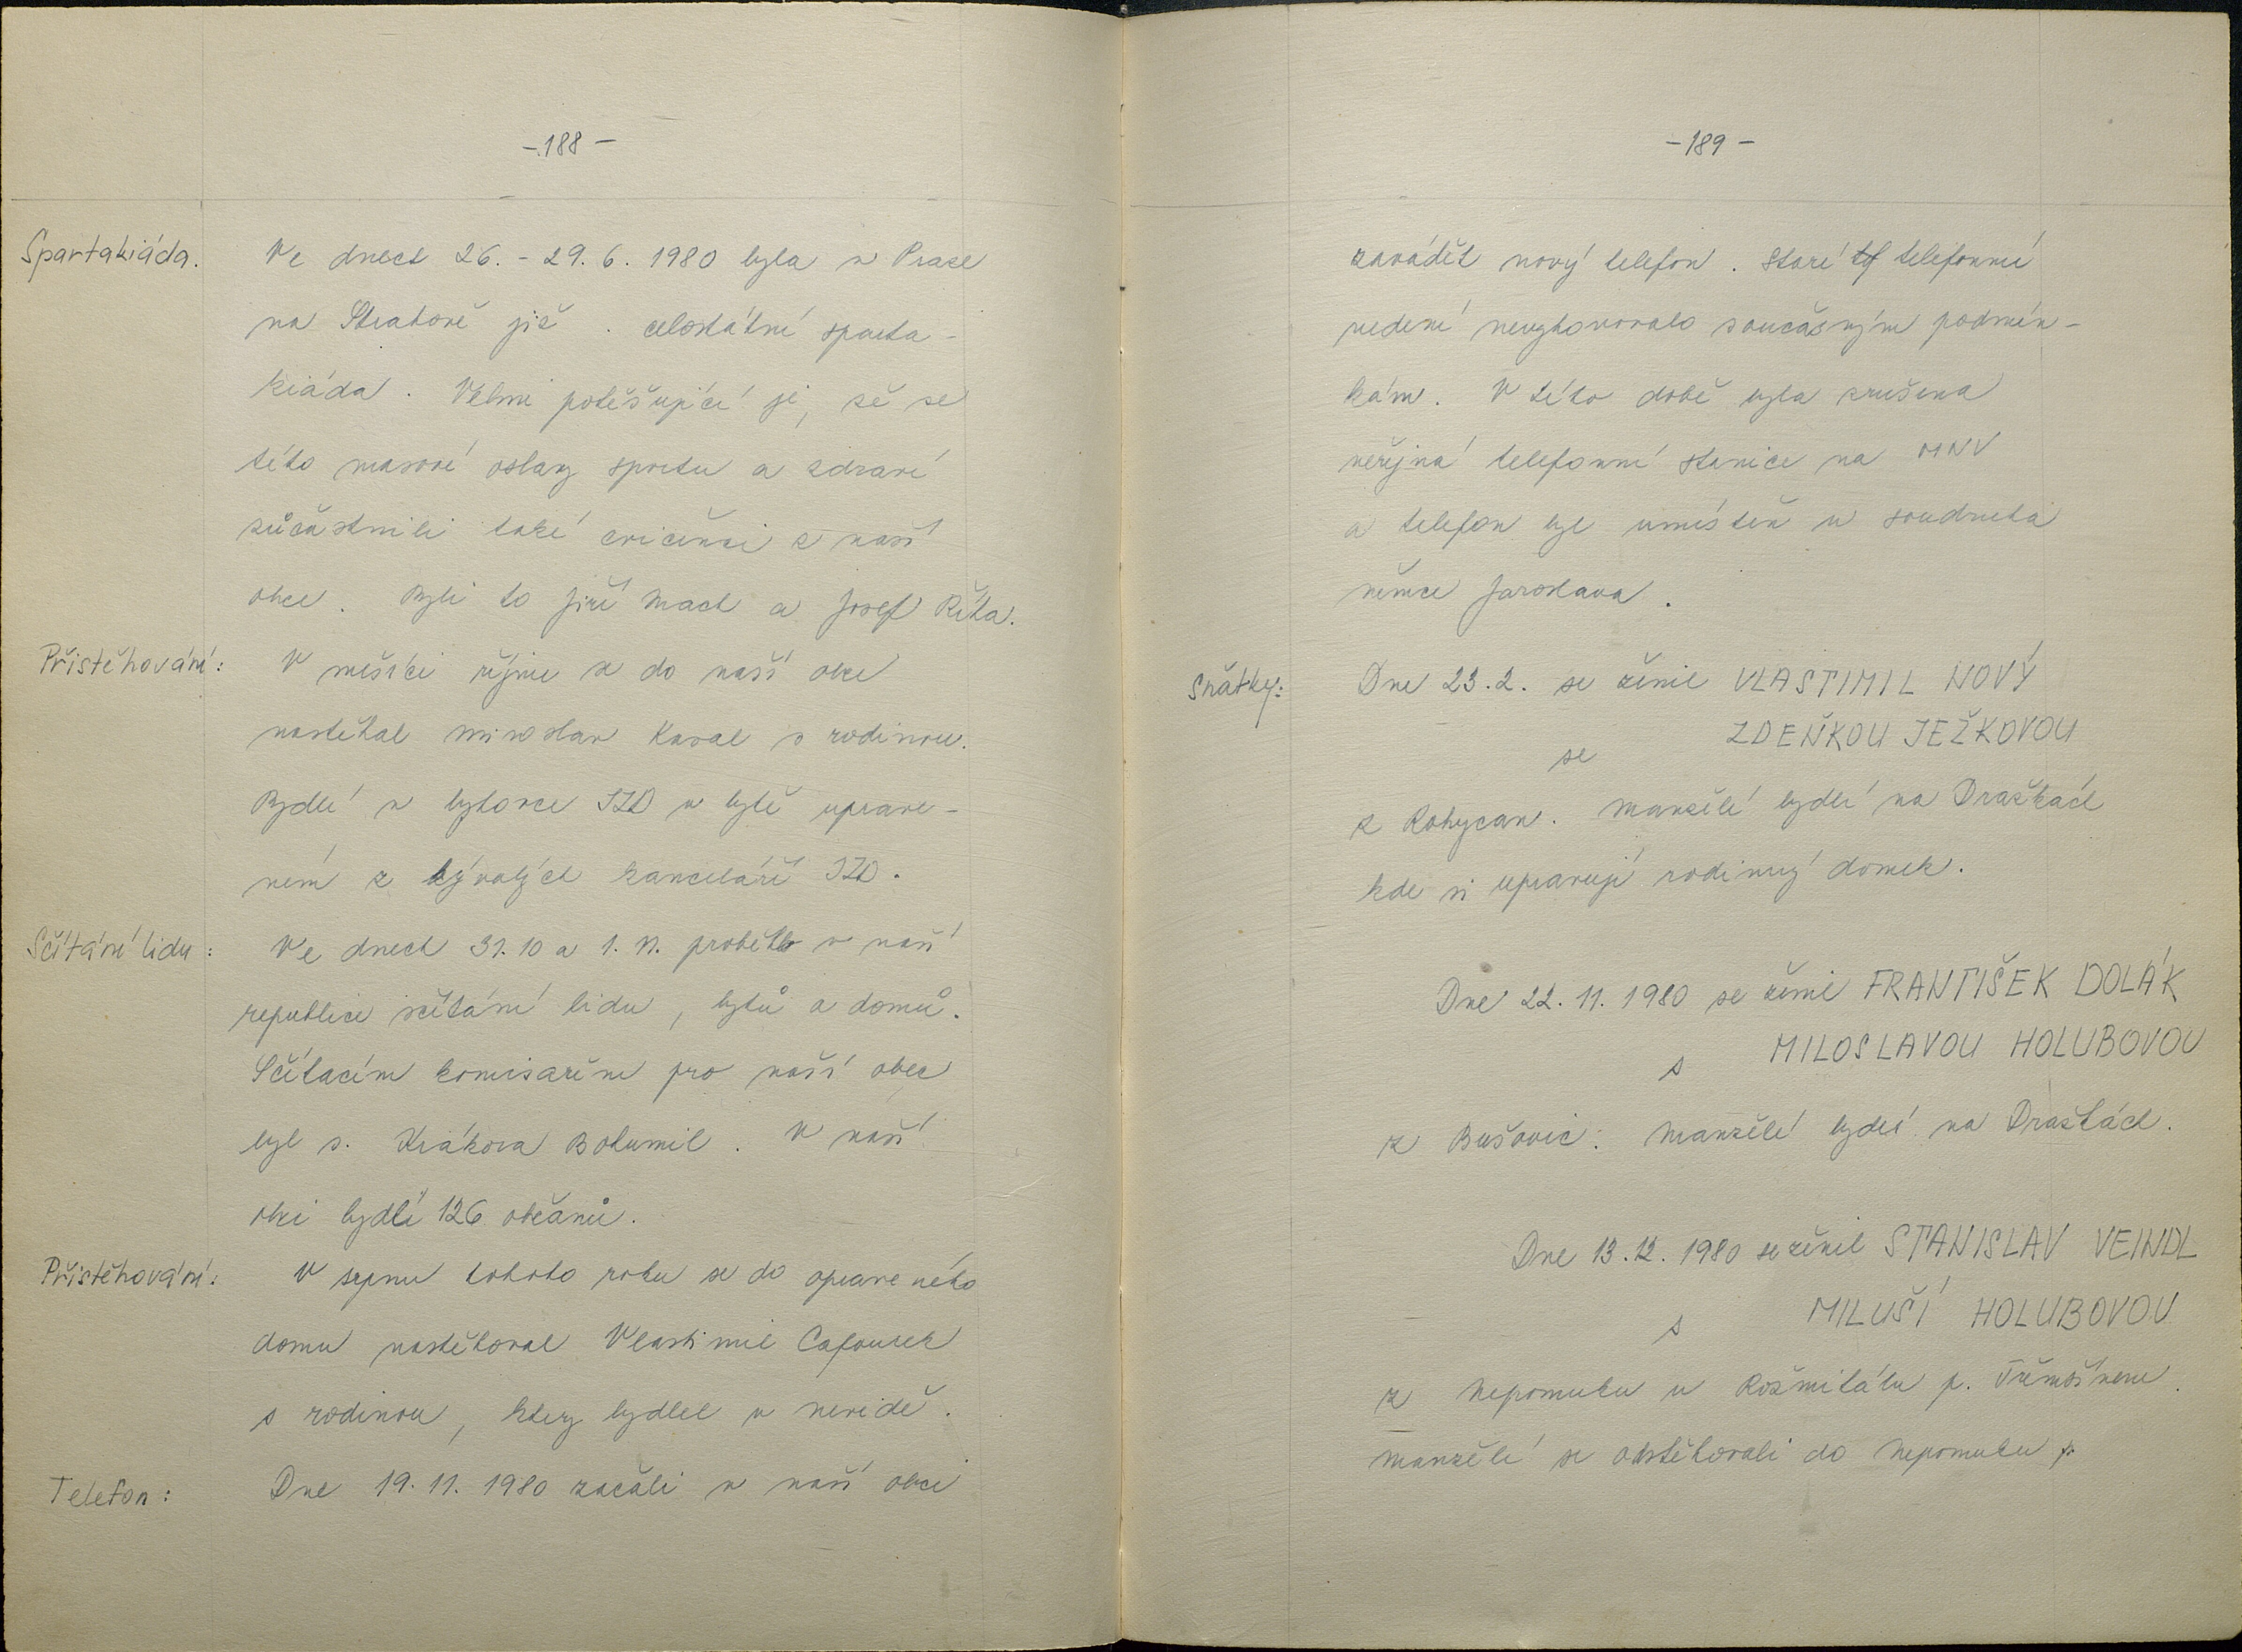 -188-
Spartakiáda. Ve dnech 26. - 29. 6. 1980 byla v Praze
na Strahově již . celostátní sparta-
kiáda. Velmi potěšující je, že se
této masové oslavy sportu a zdraví
zůčastnili také cvičenci z naší
obce. Byli to Jiří Mach a Josef Říha.
Přistěhování: V měsíci říjnu se do naší obce
nastěhal Miroslav Kasal s rodinou.
Bydlí v bytovce JZD v bytě uprave-
ném z bývalých kanceláří JZD.
Sčítání lidu: Ve dnech 31. 10 a 1. 11. proběhlo v naší
republice sčítání lidu, bytů a domů.
Sčítacím komisařem pro naší obec
byl s. Krákora Bohumil. V naší
obci bydlí 126 občanů.
Přistěhování: V srpnu tohoto roku se do opraveného
domu nastěhoval Vlastimil Cafourek
s rodinou, který bydlel v nevidě.
Telefon: Dne 19. 11. 1980 začali v naší obci
-189-
zavádět nový telefon. Staré tf telefonní
vedení nevyhovovalo současným podmín-
kám. V této době byla zrušena
veřejná telefonní stanice na MNV
a telefon byl umístěn u soudruha
němce Jaroslava.
Sňatky: Dne 23. 2. se ženil VLASTIMIL NOVÝ
se ZDEŇKOU JEŽKOVOU
z Rokycan. Manželé bydlí na Dražkách
kde si upravují rodinný domek.
Dne 22. 11. 1980 se ženil FRANTIŠEK DOLÁK
s MILOSLAVOU HOLUBOVOU
z Bušovic. Manželé bydlí na Draškách.
Dne 13. 12. 1980 se ženil STANISLAV VEINDL
s MILUŠÍ HOLUBOVOU
z Nepomuku u Rožmitálu p. Třemšínem.
manželé se odstěhovali do Nepomuku p.